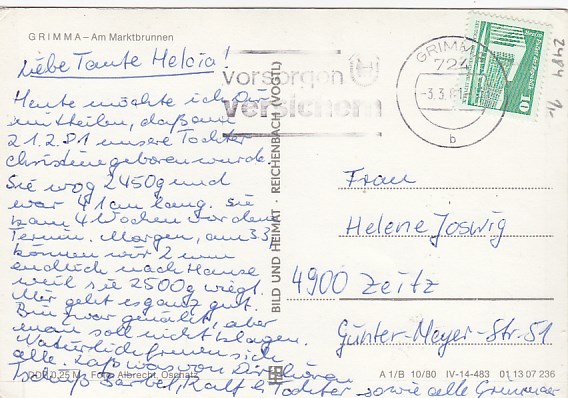 GRIMMA – Am Marktbrunnen
Liebe Tante Helchia!
Heute möchte ich Dir
mitteilen, daß am
21.2.81 unsere Tochter
Christine geboren wurde.
Sie wog 2450g und
war 41 cm lang. Sie
kam 4 Wochen vor dem
Termin. Morgen, am 3.3.
können wir 2 nun
endlich nach Hause
weil sie 2500g wiegt.
Mir geht es ganz gut.
Bin zwar genäht, aber
man soll nicht klagen.
Natürlich freuen sich
alle. Laß was von Dir hören
Tschüß Bärbel, Ralf & Tochter sowie alle Grimmaer
vorsorgen
versichern
GRIMMA
724
-3.3.81
b
10
2484
Frau
Helene Joswig
4900 Zeitz
Günter-Meyer-Str. 51
BILD UND HEIMAT · REICHENBACH (VOGTL)
DDR 0,25 M Foto: Albrecht, Oschatz
A 1/B 10/80 IV-14-483 01 13 07 236